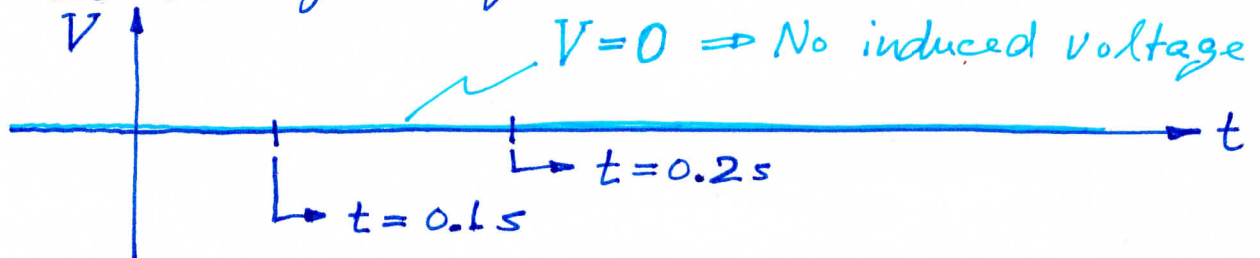 V
V=0 ⇒ No induced voltage
t
t=0.2s
t=0.1s